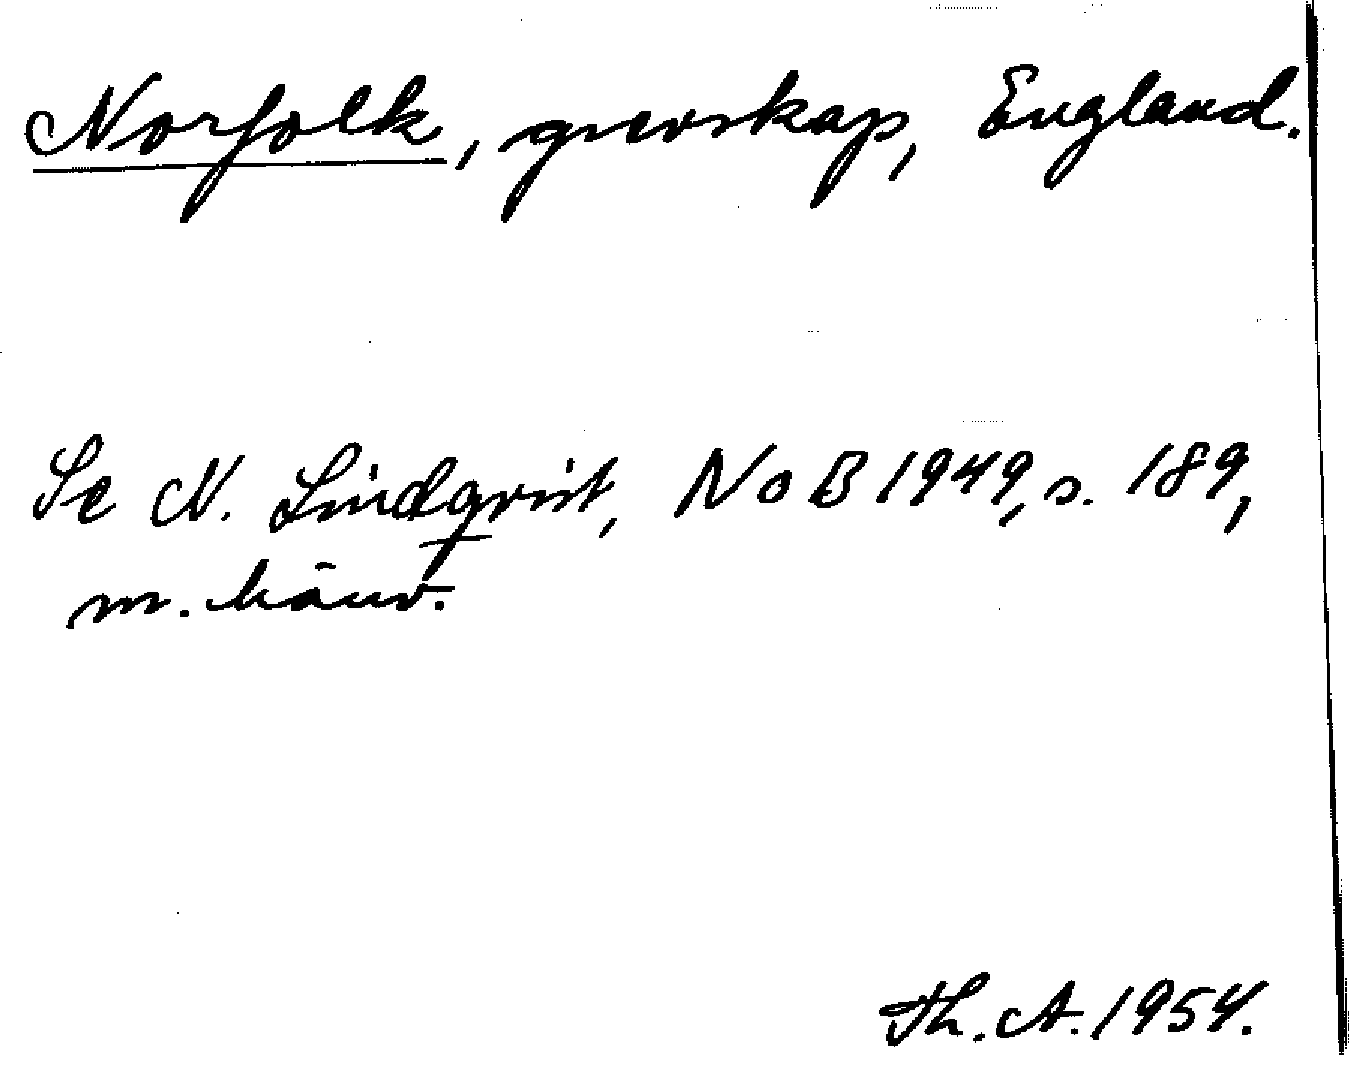 Norfolk, grevskap, England.
Se N. Lindqvist, NoB 1949, s. 189,
m. hänv.
Th. A. 1954.